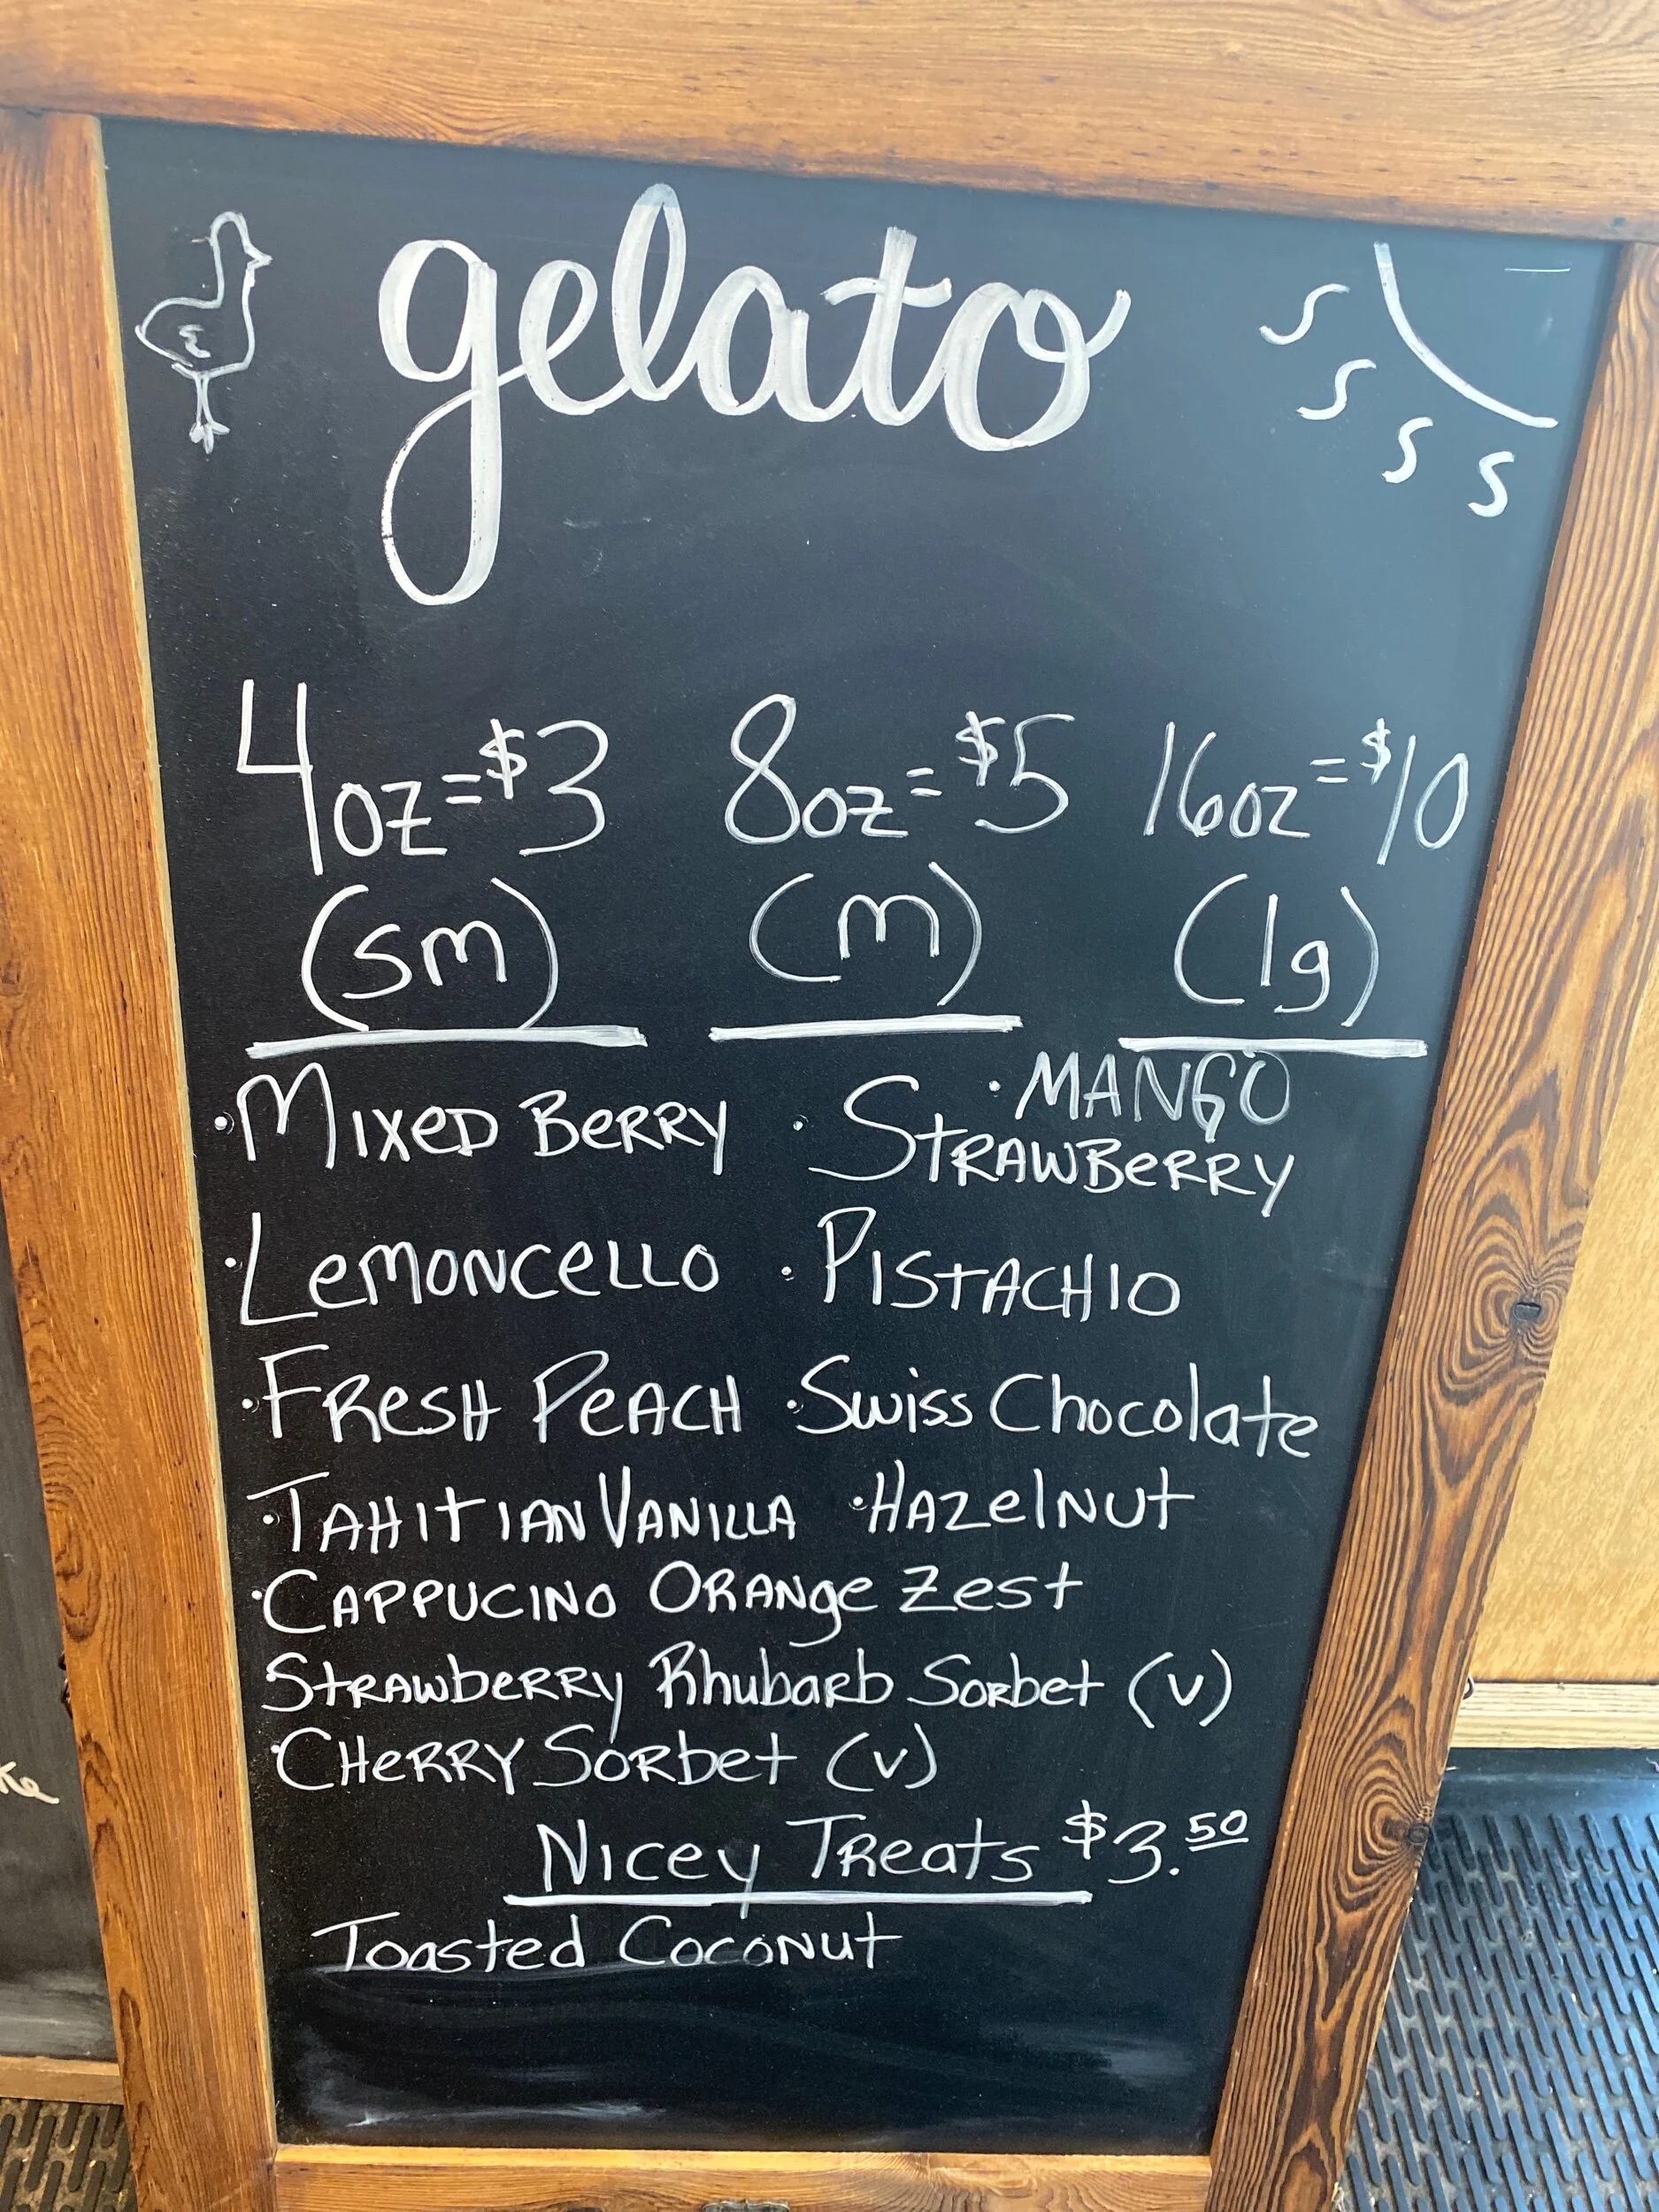 gelato
4oz=$3 8oz=$5 16oz=$10
(sm) (m) (lg)
· MANGO
· MIXED BERRY · STRAWBERRY
· LEMONCELLO · PISTACHIO
· FRESH PEACH · Swiss Chocolate
· TAHITIAN VANILLA · HAZelNUt
· CAPPUCINO ORANge Zest
StRAWbERRY Rhubarb Sorbet (v)
· CHERRY SORbet (v)
NICEY TReats $3.50
Toasted CocoNUt